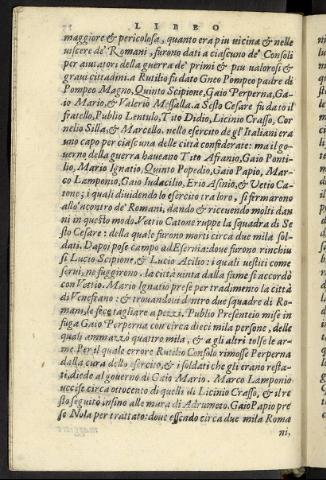 LIBRO
maggiore & pericolosa, quanto era piu uicina & nelle
uiscere de' Romani, furono dati a ciascuno de' Consoli
per aiutatori della guerra de' primi & piu ualorosi &
graui cittadini. a Rutilio fu dato Gneo Pompeo padre di
Pompeo Magno, Quinto Scipione, Gaio Perperna, Ga-
io Mario, & Valerio Messalla. a Sesto Cesare fu dato il
fratello, Publio Lentulo, Tito Didio, Licinio Crasso, Cor
nelio Silla, & Marcello. nello esercito de gl'Italiani era
uno capo per ciascuna delle città confiderate: ma il go-
uerno della guerra haueano Tito Afranio, Gaio Ponti-
lio, Mario Ignatio, Quinto Popedio, Gaio Papio, Mar-
co Lamponio, Gaio Iudacilio, Erio Asinio, & Vetio Ca-
tone; i quali diuidendo lo esercito tra loro, si firmarono
allo'ncontro de' Romani, dando & riceuendo molti dan
ni in questo modo. Vetio Catone ruppe la squadra di Se
sto Cesare: della quale furono morti circa due mila sol-
dati. Dapoi pose campo ad Esernia: doue furono rinchiu
si Lucio Scipione, & Lucio Acilio: i quali uestiti come
serui, ne fuggirono. la città uinta dalla fame si accordò
con Vetio. Mario Ignatio prese per tradimento la città
di Venefrano: & trouandoui dentro due squadre di Ro-
mani, le fece tagliare a pezzi. Publio Presenteio mise in
fuga Gaio Perperna con circa dieci mila persone, delle
quali ammazzò quattro mila, & a gli altri tolse le ar-
me. Per il quale errore Rutilio Consolo rimosse Perperna
dalla cura dello esercito, & i soldati che gli erano resta-
ti, diede al gouerno di Gaio Mario. Marco Lamponio
uccise circa ottocento di quelli di Licinio Crasso, & il re
sto seguitò insino alle mura di Adrumeto. Gaio Papio pre
se Nola per trattato: doue essendo circa due mila Roma
ni,